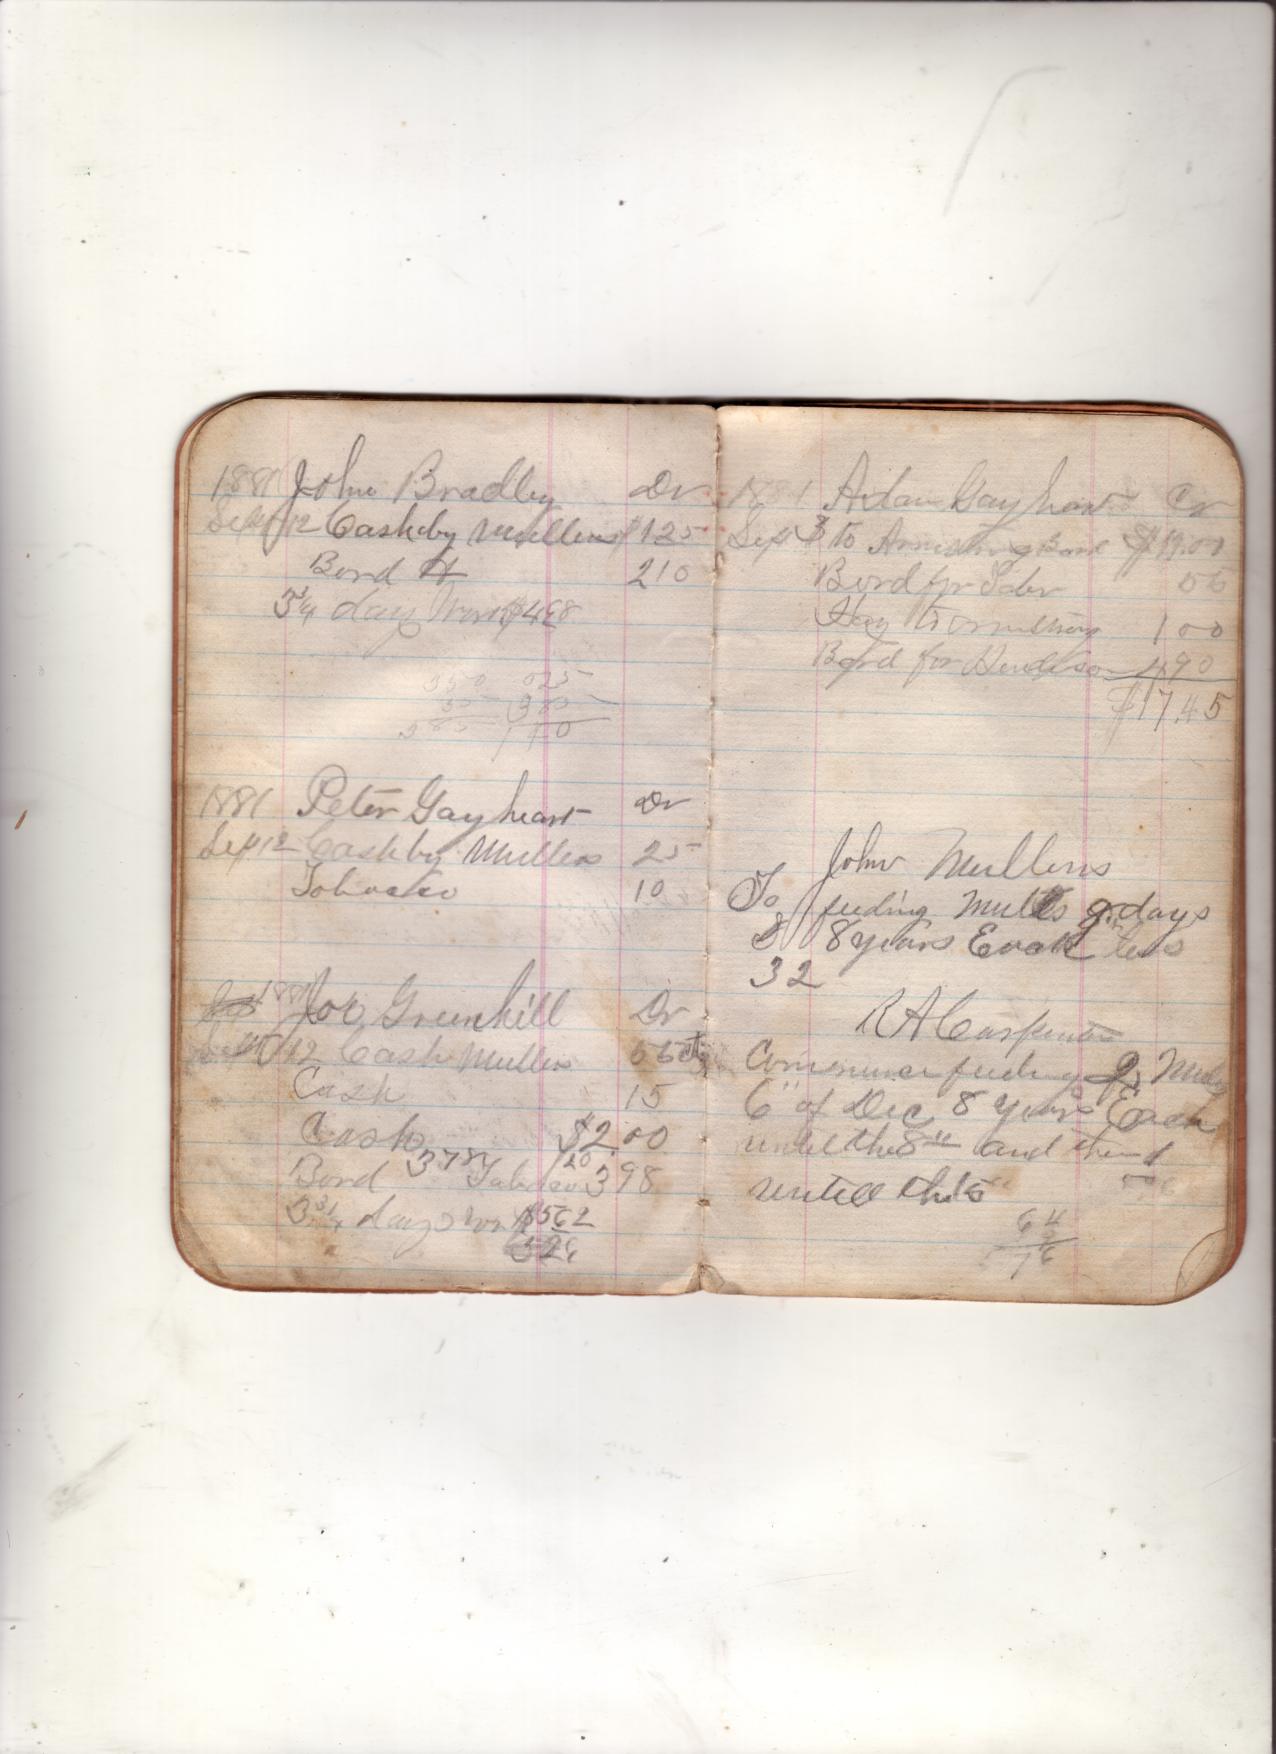 1881 John Bradley Dr
Sept 12 Cash by Mullens $125
Bord 210
3 3/4 day Work $498
350 025
35
385 110
1881 Peter Gayheart Dr
Sept 12 Cash by Mullens 25
Tobacco 10
1881 Joe Greenhill Dr
Sept 12 Cash Mullens 55cts
Cash 15
Cash $2.00
Bord 378 Tobacco 20 398
3 3/4 days Work $562
526
1881 Adam Gayheart Cr
Sept 3 to Armstrong Bord $11.00
Bord for 55
Hay to Armstrong 100
Bord for Henderson 490
$17.45
John Mullens
To feeding Mules 2 days
8 8 years Each
32
R A Carpenter
Commence feeding 2 Mules
6" of Dec 8 years Each
until the 8" and then
until the 15"
64